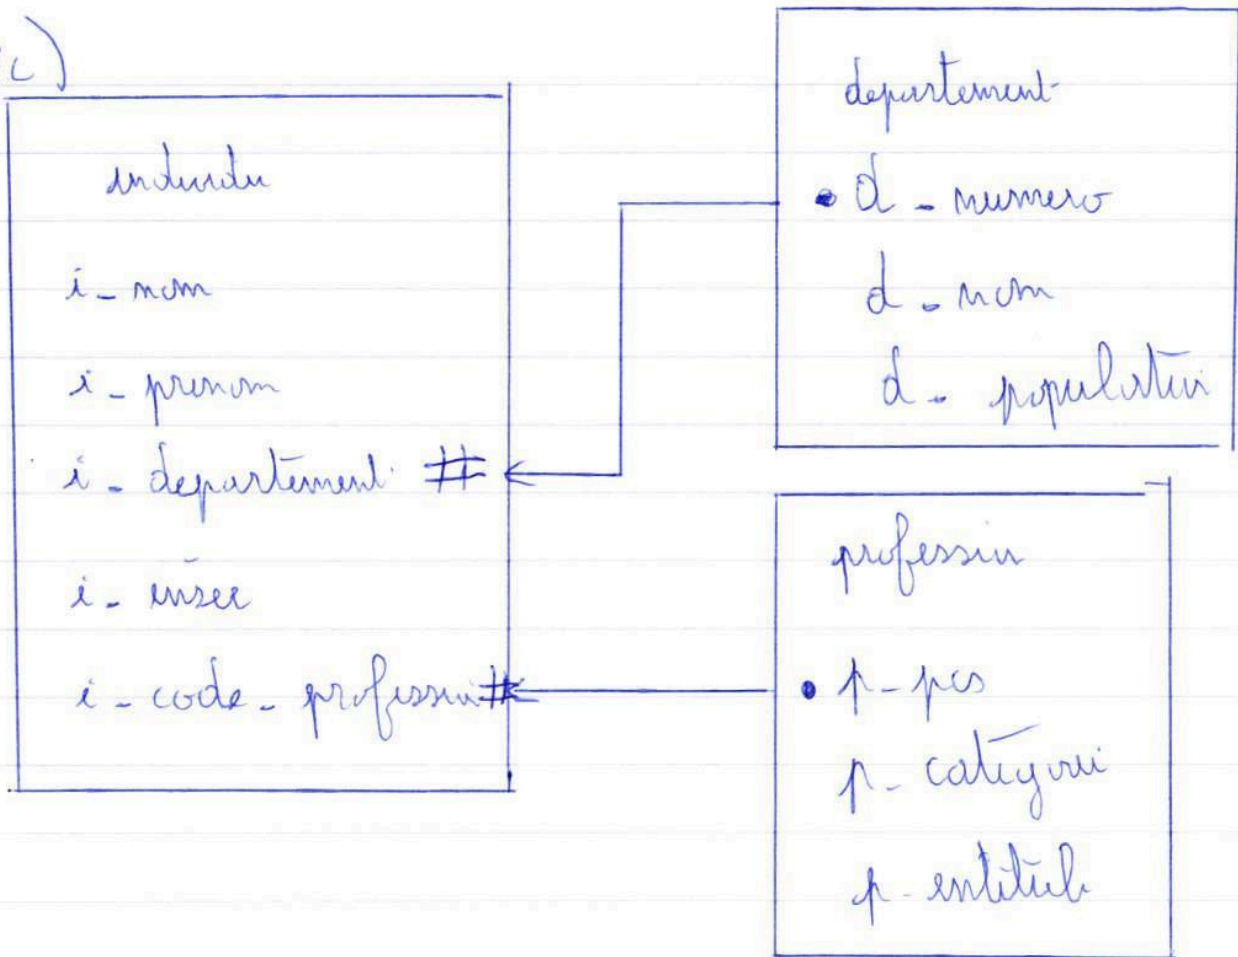 c)
individu
i_nom
i_prenom
i_departement #
i_insee
i_code_profession #
departement
• d_numero
d_nom
d_population
profession
• p_pcs
p_catégorie
p_intitule